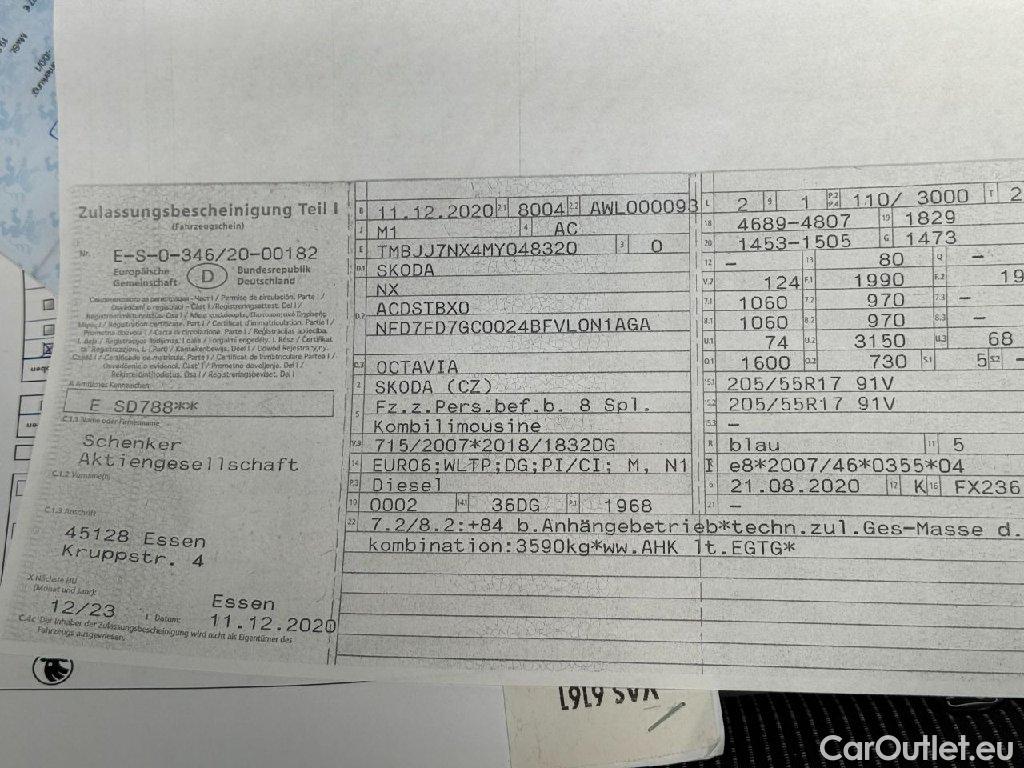 Zulassungsbescheinigung Teil I
(Fahrzeugschein)
Nr. E-S-0-346/20-00182
Europäische Gemeinschaft D Bundesrepublik Deutschland
A Amtliches Kennzeichen
E SD788**
C.1.1 Name oder Firmenname
Schenker
Aktiengesellschaft
C.1.2 Vorname(n)
C.1.3 Anschrift
45128 Essen
Kruppstr. 4
X Nächste HU
(Monat und Jahr)
12/23
Essen
I Datum: 11.12.2020
C.4c Der Inhaber der Zulassungsbescheinigung wird nicht als Eigentümer des
Fahrzeugs ausgewiesen.
B 11.12.2020 2.1 8004 2.2 AWL000093
J M1 4 AC
E TMBJJ7NX4MY048320 3 0
D.1 SKODA
NX
D.2 ACDSTBX0
NFD7FD7GC0024BFVLON1AGA
D.3 OCTAVIA
2 SKODA (CZ)
5 Fz.z.Pers.bef.b. 8 Spl.
Kombilimousine
V.9 715/2007*2018/1832DG
14 EURO6;WLTP;DG;PI/CI; M, N1
P.3 Diesel
10 0002 14.1 36DG P.1 1968
22 7.2/8.2:+84 b.Anhängebetrieb*techn.zul.Ges-Masse d.
kombination:3590kg*ww.AHK lt.EGTG*
L 2 9 1 P.2 P.4 110/ 3000 T 2
18 4689-4807 19 1829
20 1453-1505 G 1473
12 – 13 80 Q –
V.7 124 F.1 1990 F.2 19
7.1 1060 7.2 970 7.3 –
8.1 1060 8.2 970 8.3 –
U.1 74 U.2 3150 U.3 68
O.1 1600 O.2 730 S.1 5 S.2 –
15.1 205/55R17 91V
15.2 205/55R17 91V
15.3 –
R blau 11 5
K e8*2007/46*0355*04
6 21.08.2020 17 K 16 FX236
21 –
VAS 6161
CarOutlet.eu